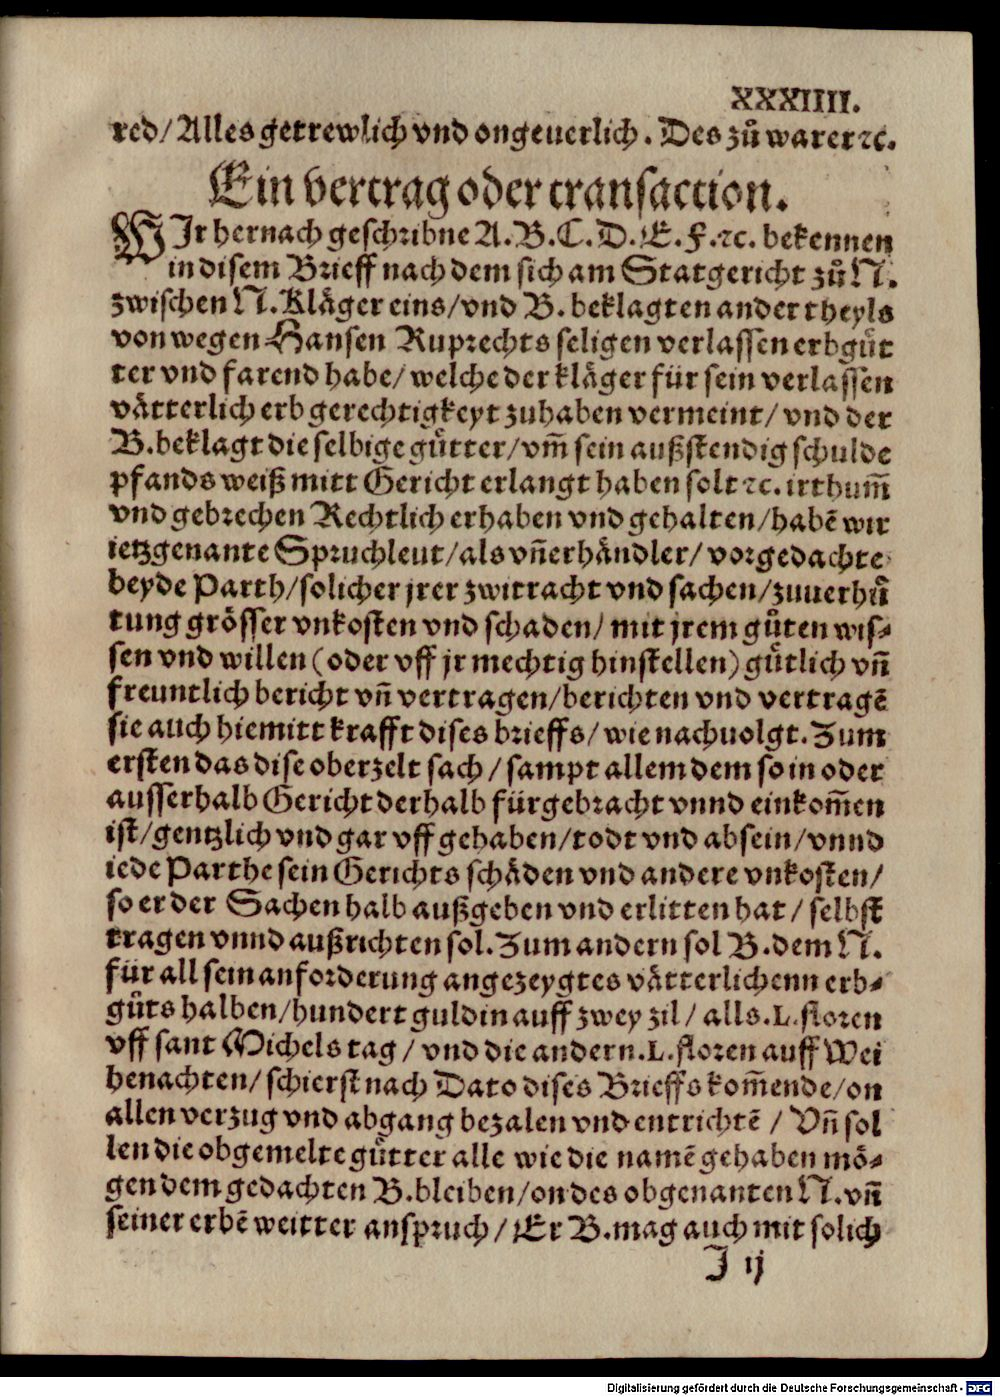 XXXIIII.
red/ Alles getrewlich vnd ongeuerlich. Des zů warer ꝛc.
Ein vertrag oder transaction.
WIr hernach geschribne A. B. C. D. E. F. ꝛc. bekennen
in disem Brieff nach dem sich am Statgericht zů N.
zwischen N. Kläger eins/ vnd B. beklagten ander theyls
von wegen Hansen Ruprechts seligen verlassen erbgůt
ter vnd farend habe/ welche der kläger für sein verlassen
vätterlich erb gerechtigkeyt zuhaben vermeint/ vnd der
B. beklagt die selbige gůtter/ vm̃ sein außstendig schulde
pfands weiß mitt Gericht erlangt haben solt ꝛc. irthum̃
vnd gebrechen Rechtlich erhaben vnd gehalten/ habẽ wir
ietzgenante Spruchleut/ als vñerhändler/ vorgedachte
beyde Parth/ solicher jrer zwitracht vnd sachen/ zuuerhů
tung grösser vnkosten vnd schaden/ mit jrem gůten wis⸗
sen vnd willen (oder vff jr mechtig hinstellen) gůtlich vñ
freuntlich bericht vñ vertragen/ berichten vnd vertragẽ
sie auch hiemitt krafft dises brieffs/ wie nachuolgt. Zum
ersten das dise oberzelt sach/ sampt allem dem so in oder
ausserhalb Gericht derhalb fürgebracht vnnd einkom̃en
ist/ gentzlich vnd gar vff gehaben/ todt vnd absein/ vnnd
iede Parthe sein Gerichts schäden vnd andere vnkosten/
so er der Sachen halb außgeben vnd erlitten hat/ selbst
tragen vnnd außrichten sol. Zum andern sol B. dem N.
für all sein anforderung angezeygtes vätterlichenn erb⸗
gůts halben/ hundert guldin auff zwey zil/ alls .L. floren
vff sant Michels tag/ vnd die andern .L. floren auff Wei
henachten/ schierst nach Dato dises Brieffs kom̃ende/ on
allen verzug vnd abgang bezalen vnd entrichtẽ/ Vñ sol
len die obgemelte gůtter alle wie die namẽ gehaben mö⸗
gen dem gedachten B. bleiben/ on des obgenanten N. vñ
seiner erbẽ weitter anspruch/ Er B. mag auch mit solich
J ij
Digitalisierung gefördert durch die Deutsche Forschungsgemeinschaft - DFG